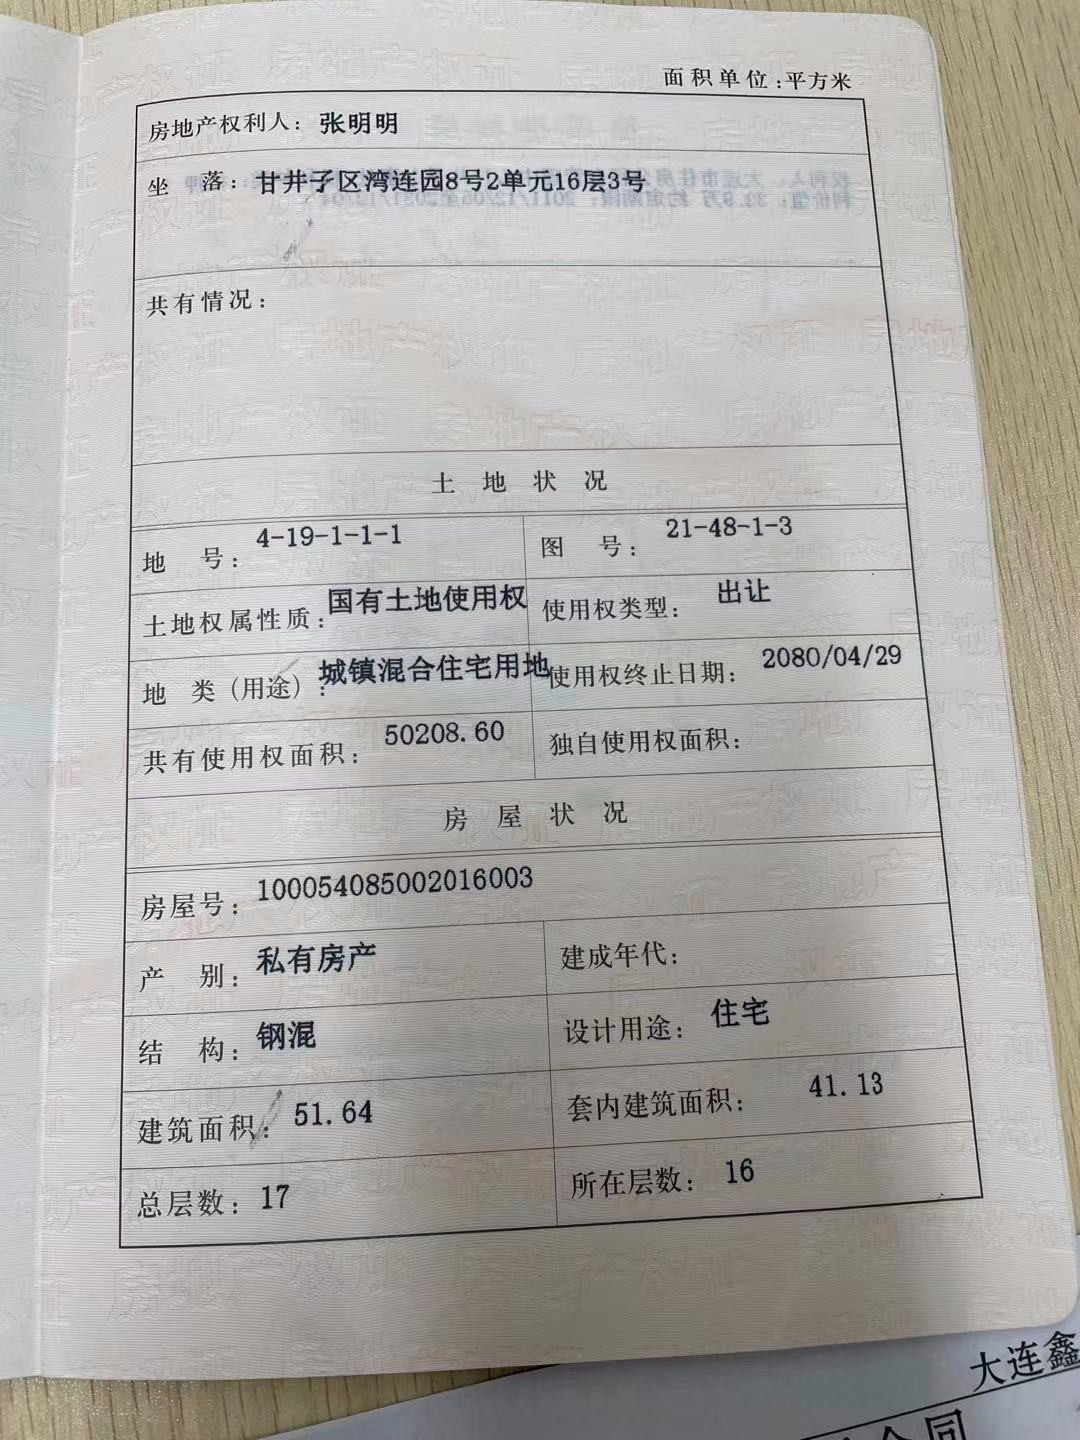 面积单位:平方米
房地产权利人：张明明
坐 落：甘井子区湾连园8号2单元16层3号
共有情况：
土地状况
地 号：4-19-1-1-1 图 号：21-48-1-3
土地权属性质：国有土地使用权 使用权类型：出让
地 类（用途）：城镇混合住宅用地 使用权终止日期：2080/04/29
共有使用权面积：50208.60 独自使用权面积：
房屋状况
房屋号：100054085002016003
产 别：私有房产 建成年代：
结 构：钢混 设计用途：住宅
建筑面积：51.64 套内建筑面积：41.13
总层数：17 所在层数：16
大连鑫
合同